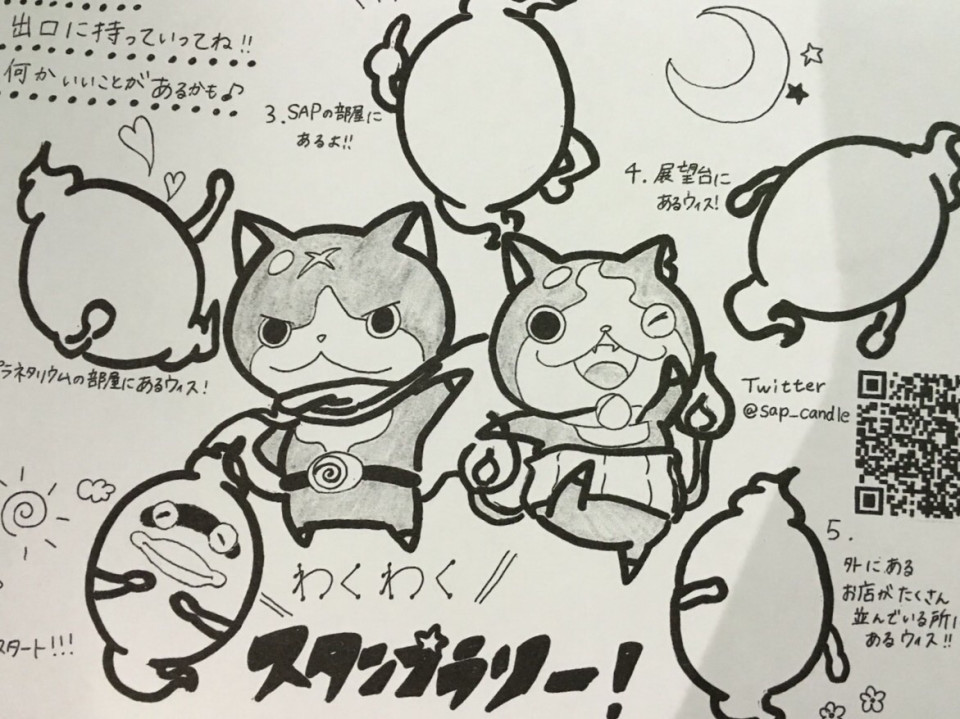 出口に持っていってね!!
何かいいことがあるかも♪
3.SAPの部屋に
あるよ!!
4.展望台に
あるウィス!
プラネタリウムの部屋にあるウィス!
Twitter
@sap_candle
5.
外にある
お店がたくさん
並んでいる所に
あるウィス!!
スタート!!!
わくわく
スタンプラリー!